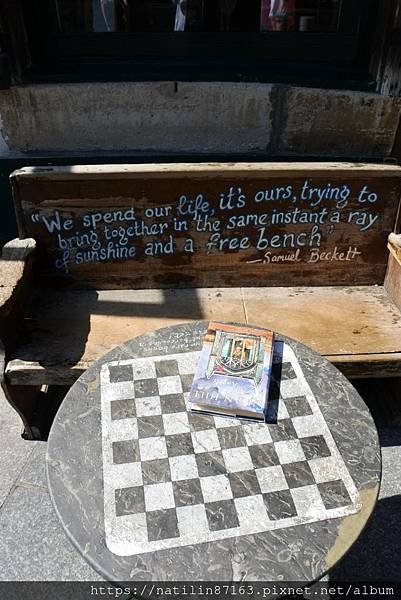 "We spend our life, it's ours, trying to
bring together in the same instant a ray
of sunshine and a free bench"
—Samuel Beckett
https://natilin87163.pixnet.net/album